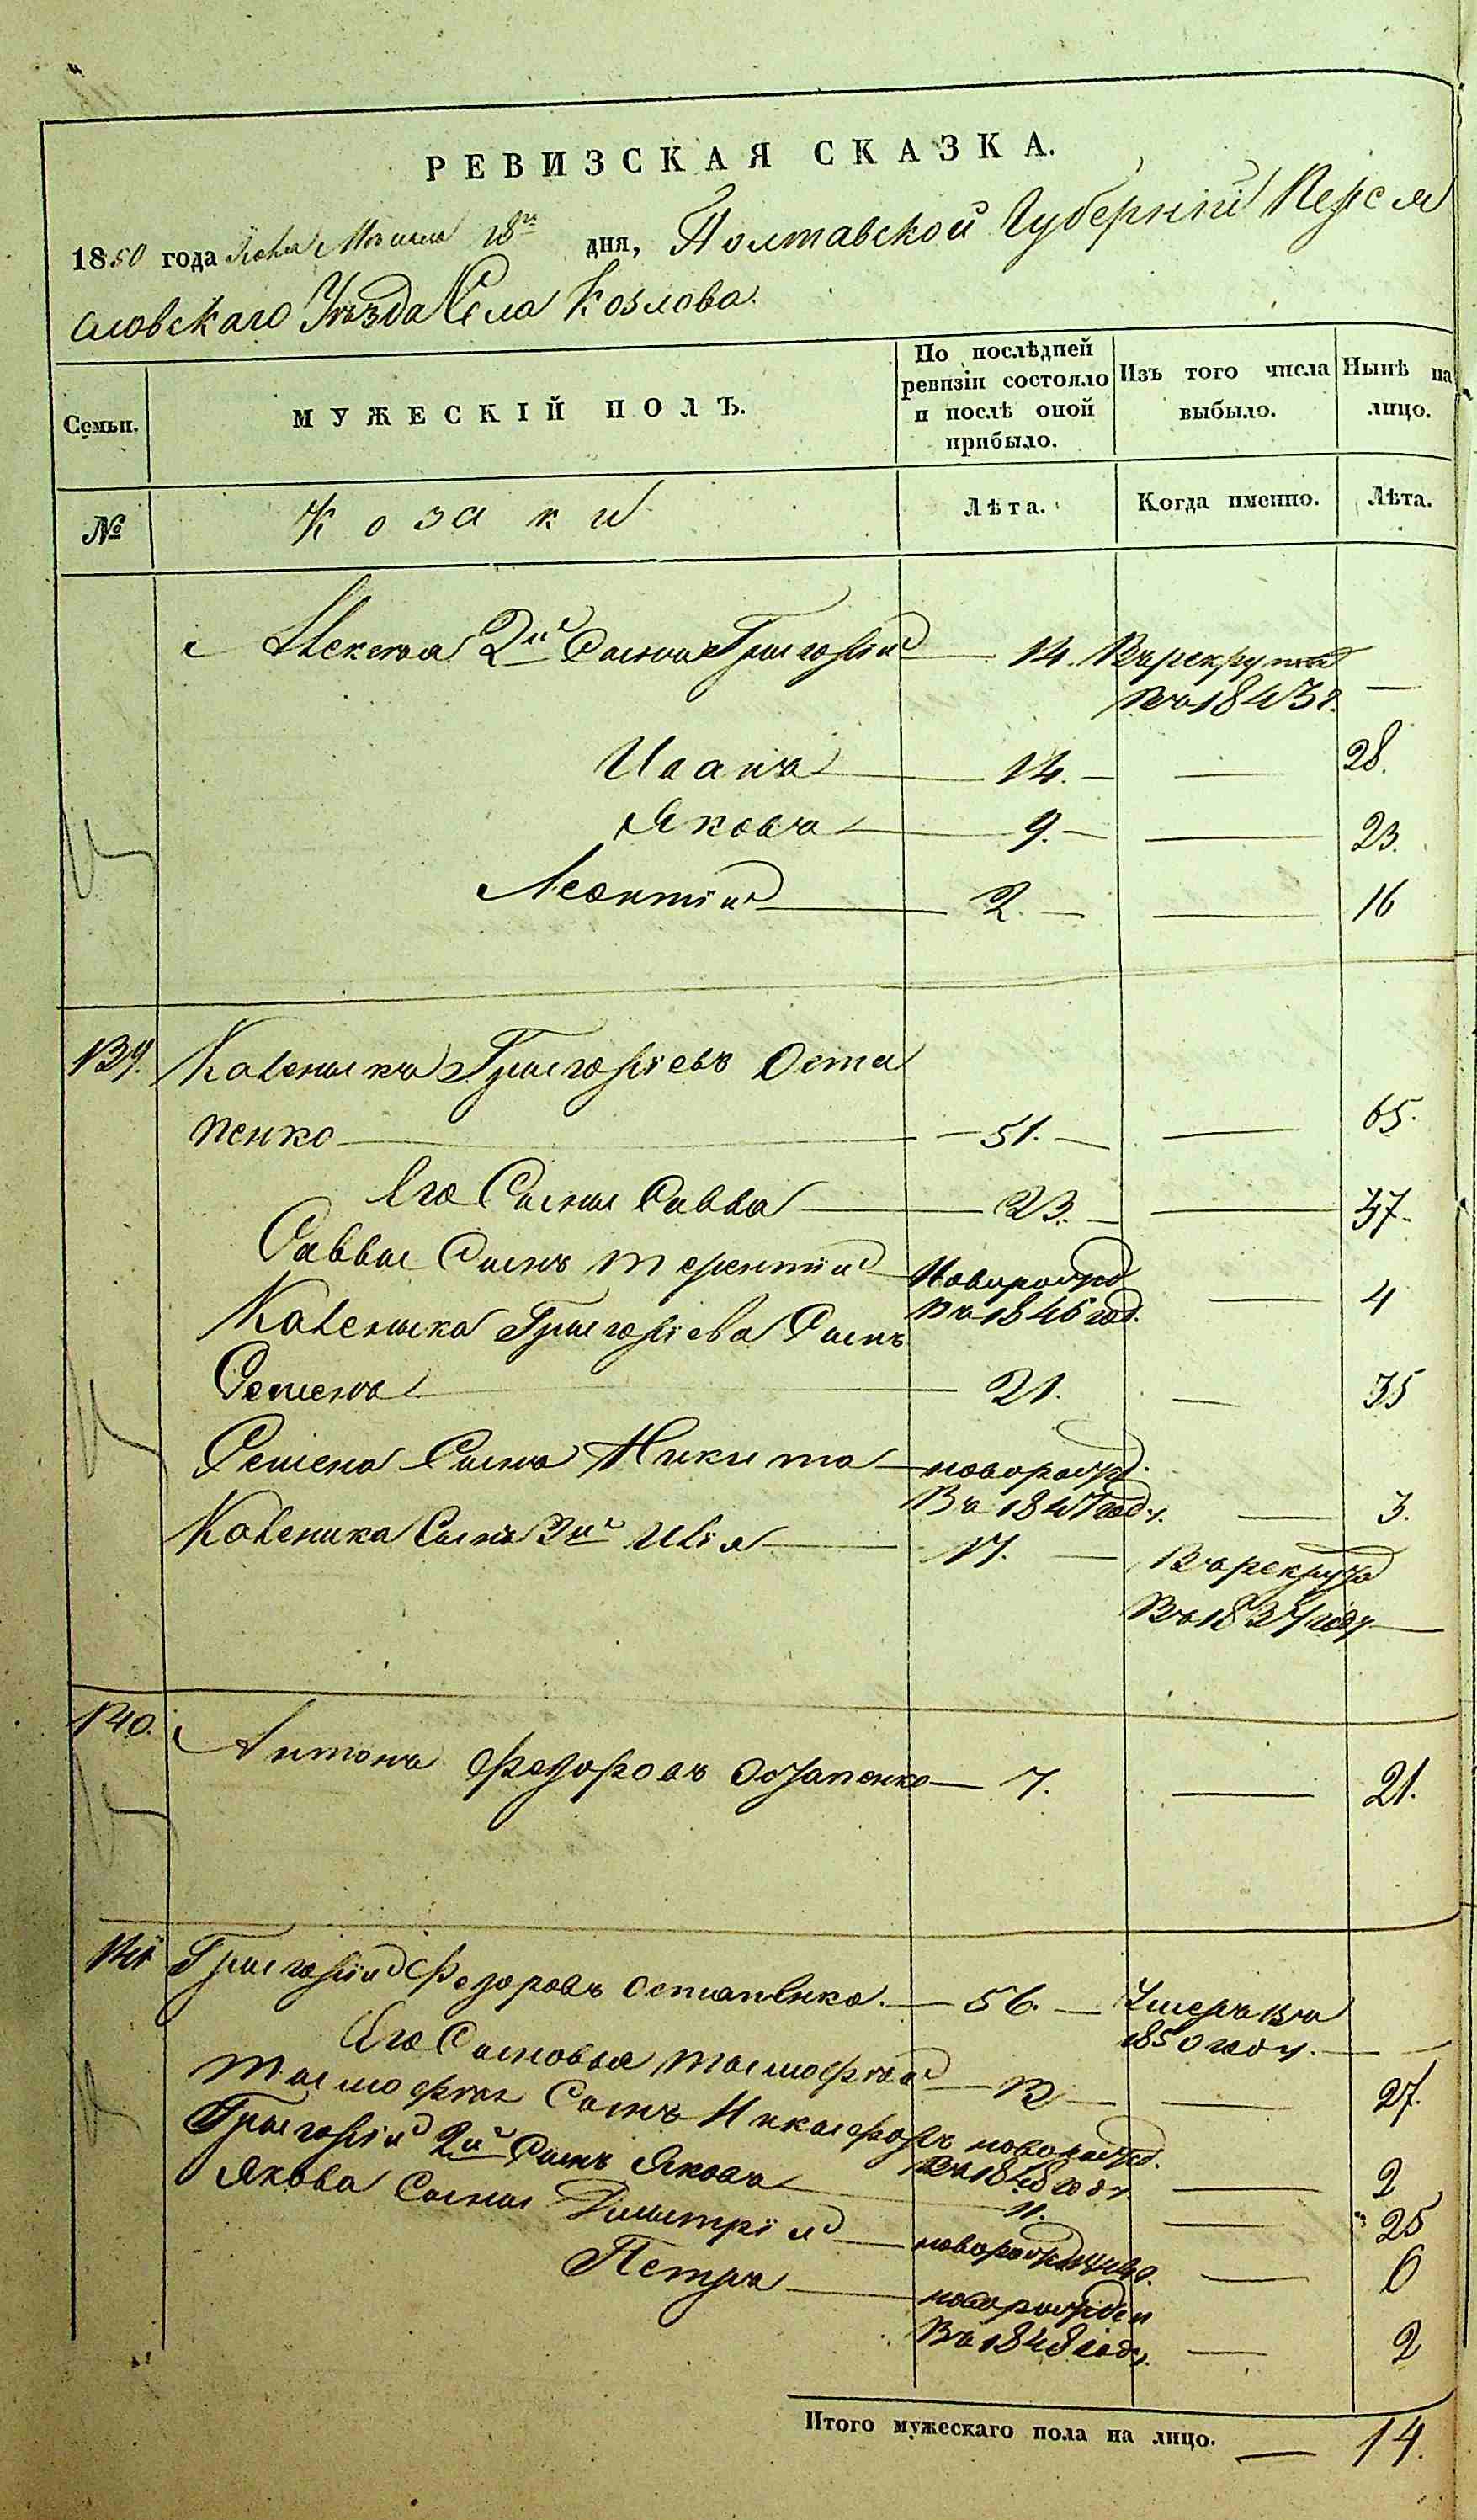 РЕВИЗСКАЯ СКАЗКА.
1850 года Мѣсяца 18го дня, Полтавской Губерніи Переяс
ловскаго Уѣзда Села Козлова.
Семьи.
МУЖЕСКІЙ ПОЛЪ.
По послѣдней ревизіи состояло и послѣ оной прибыло.
Изъ того числа выбыло.
Нынѣ на лицо.
№
Козаки
Лѣта.
Когда именно.
Лѣта.
Алексѣя 2й Сынъ Григорій 14. Въ рекруты
въ 1843 г. —
Иванъ — 14. — — 28.
Яковъ — 9. — — 23.
Леонтій — 2. — — 16
139. Григоріевъ Оста
пенко — 51. — — 65.
Его Сыны Савва — 23. — — 37.
Саввы Сынъ Терентій Новорожд — 4
въ 1846 год.
Григоріева Сынъ
Семенъ — 21. — 35
Семена Сынъ Никита — новорожд.
Въ 1847 году. — 3.
Сынъ 3й Илія — 17. — Въ рекруты
Въ 1837 году —
140. Антонъ Федоровъ Остапенко — 7. — 21.
141 Григорій Федоровъ Остапенко. — 56. — Умеръ въ
1850 году. —
Его Сыновья Тимофѣй — 13 — — 27.
Тимофѣя Сынъ Никифоръ новорожд.
въ 1848 году. — 2
Григорія 2й Сынъ Яковъ — 11. — 25
Якова Сыны Димитрій — новорожд — 6
Петръ — новорожден
Въ 1848 году. — 2
Итого мужескаго пола на лицо. — 14.